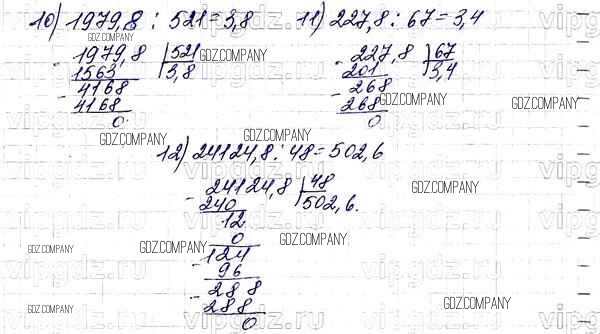 10) 1979,8 : 521 = 3,8
11) 227,8 : 67 = 3,4
GDZ.COMPANY
- 1979,8 | 521
1563 | 3,8
GDZ.COMPANY
- 4168
4168
0
- 227,8 | 67
201 | 3,4
- 268
268
0
GDZ.COMPANY
GDZ.COMPANY
GDZ.COMPANY
12) 24124,8 : 48 = 502,6
- 24124,8 | 48
240 | 502,6.
12
0
- 124
96
- 288
288
0
GDZ.COMPANY
GDZ.COMPANY
GDZ.COMPANY
GDZ.COMPANY
GDZ.COMPANY
GDZ.COMPANY
GDZ.COMPANY
vipgdz.ru
vipgdz.ru
vipgdz.ru
vipgdz.ru